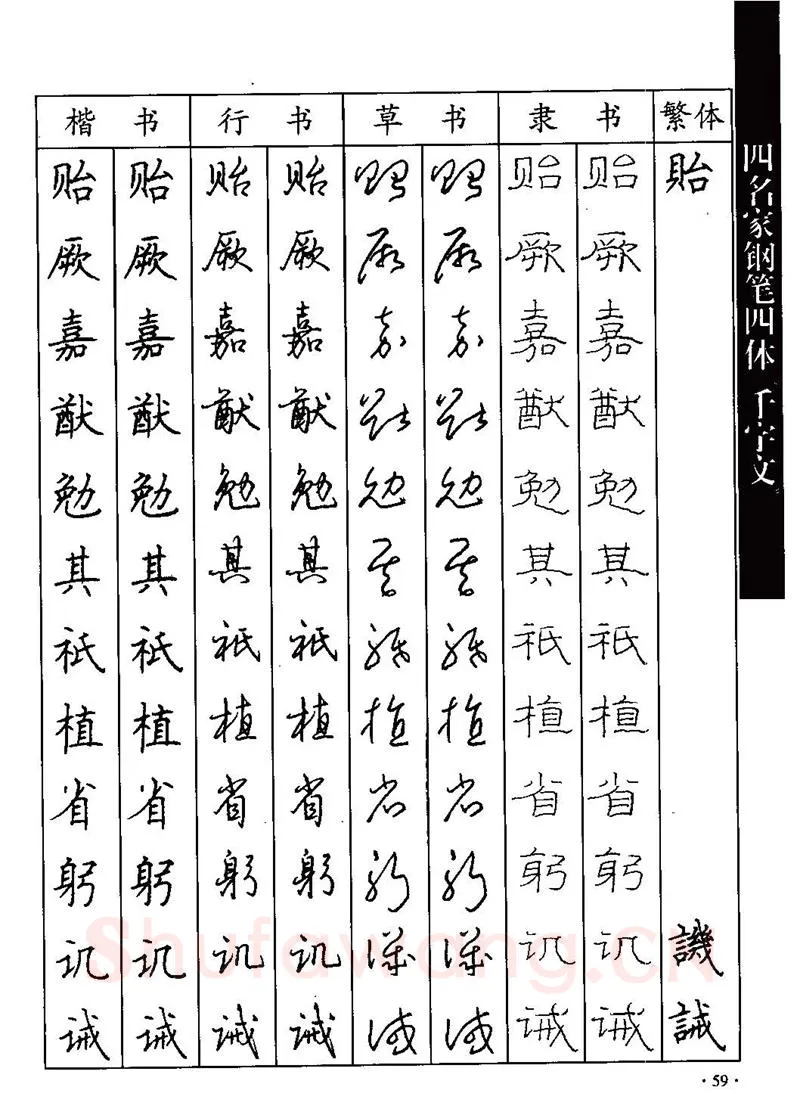 楷书 行书 草书 隶书 繁体
贻 贻 贻 贻 贻 贻 贻 贻 貽
厥 厥 厥 厥 厥 厥 厥 厥
嘉 嘉 嘉 嘉 嘉 嘉 嘉 嘉
猷 猷 猷 猷 猷 猷 猷 猷
勉 勉 勉 勉 勉 勉 勉 勉
其 其 其 其 其 其 其 其
祗 祗 祗 祗 祗 祗 祗 祗
植 植 植 植 植 植 植 植
省 省 省 省 省 省 省 省
躬 躬 躬 躬 躬 躬 躬 躬
讥 讥 讥 讥 讥 讥 讥 讥 譏
诫 诫 诫 诫 诫 诫 诫 诫 誡
四名家钢笔四体 千字文
Shufawang.CN
·59·